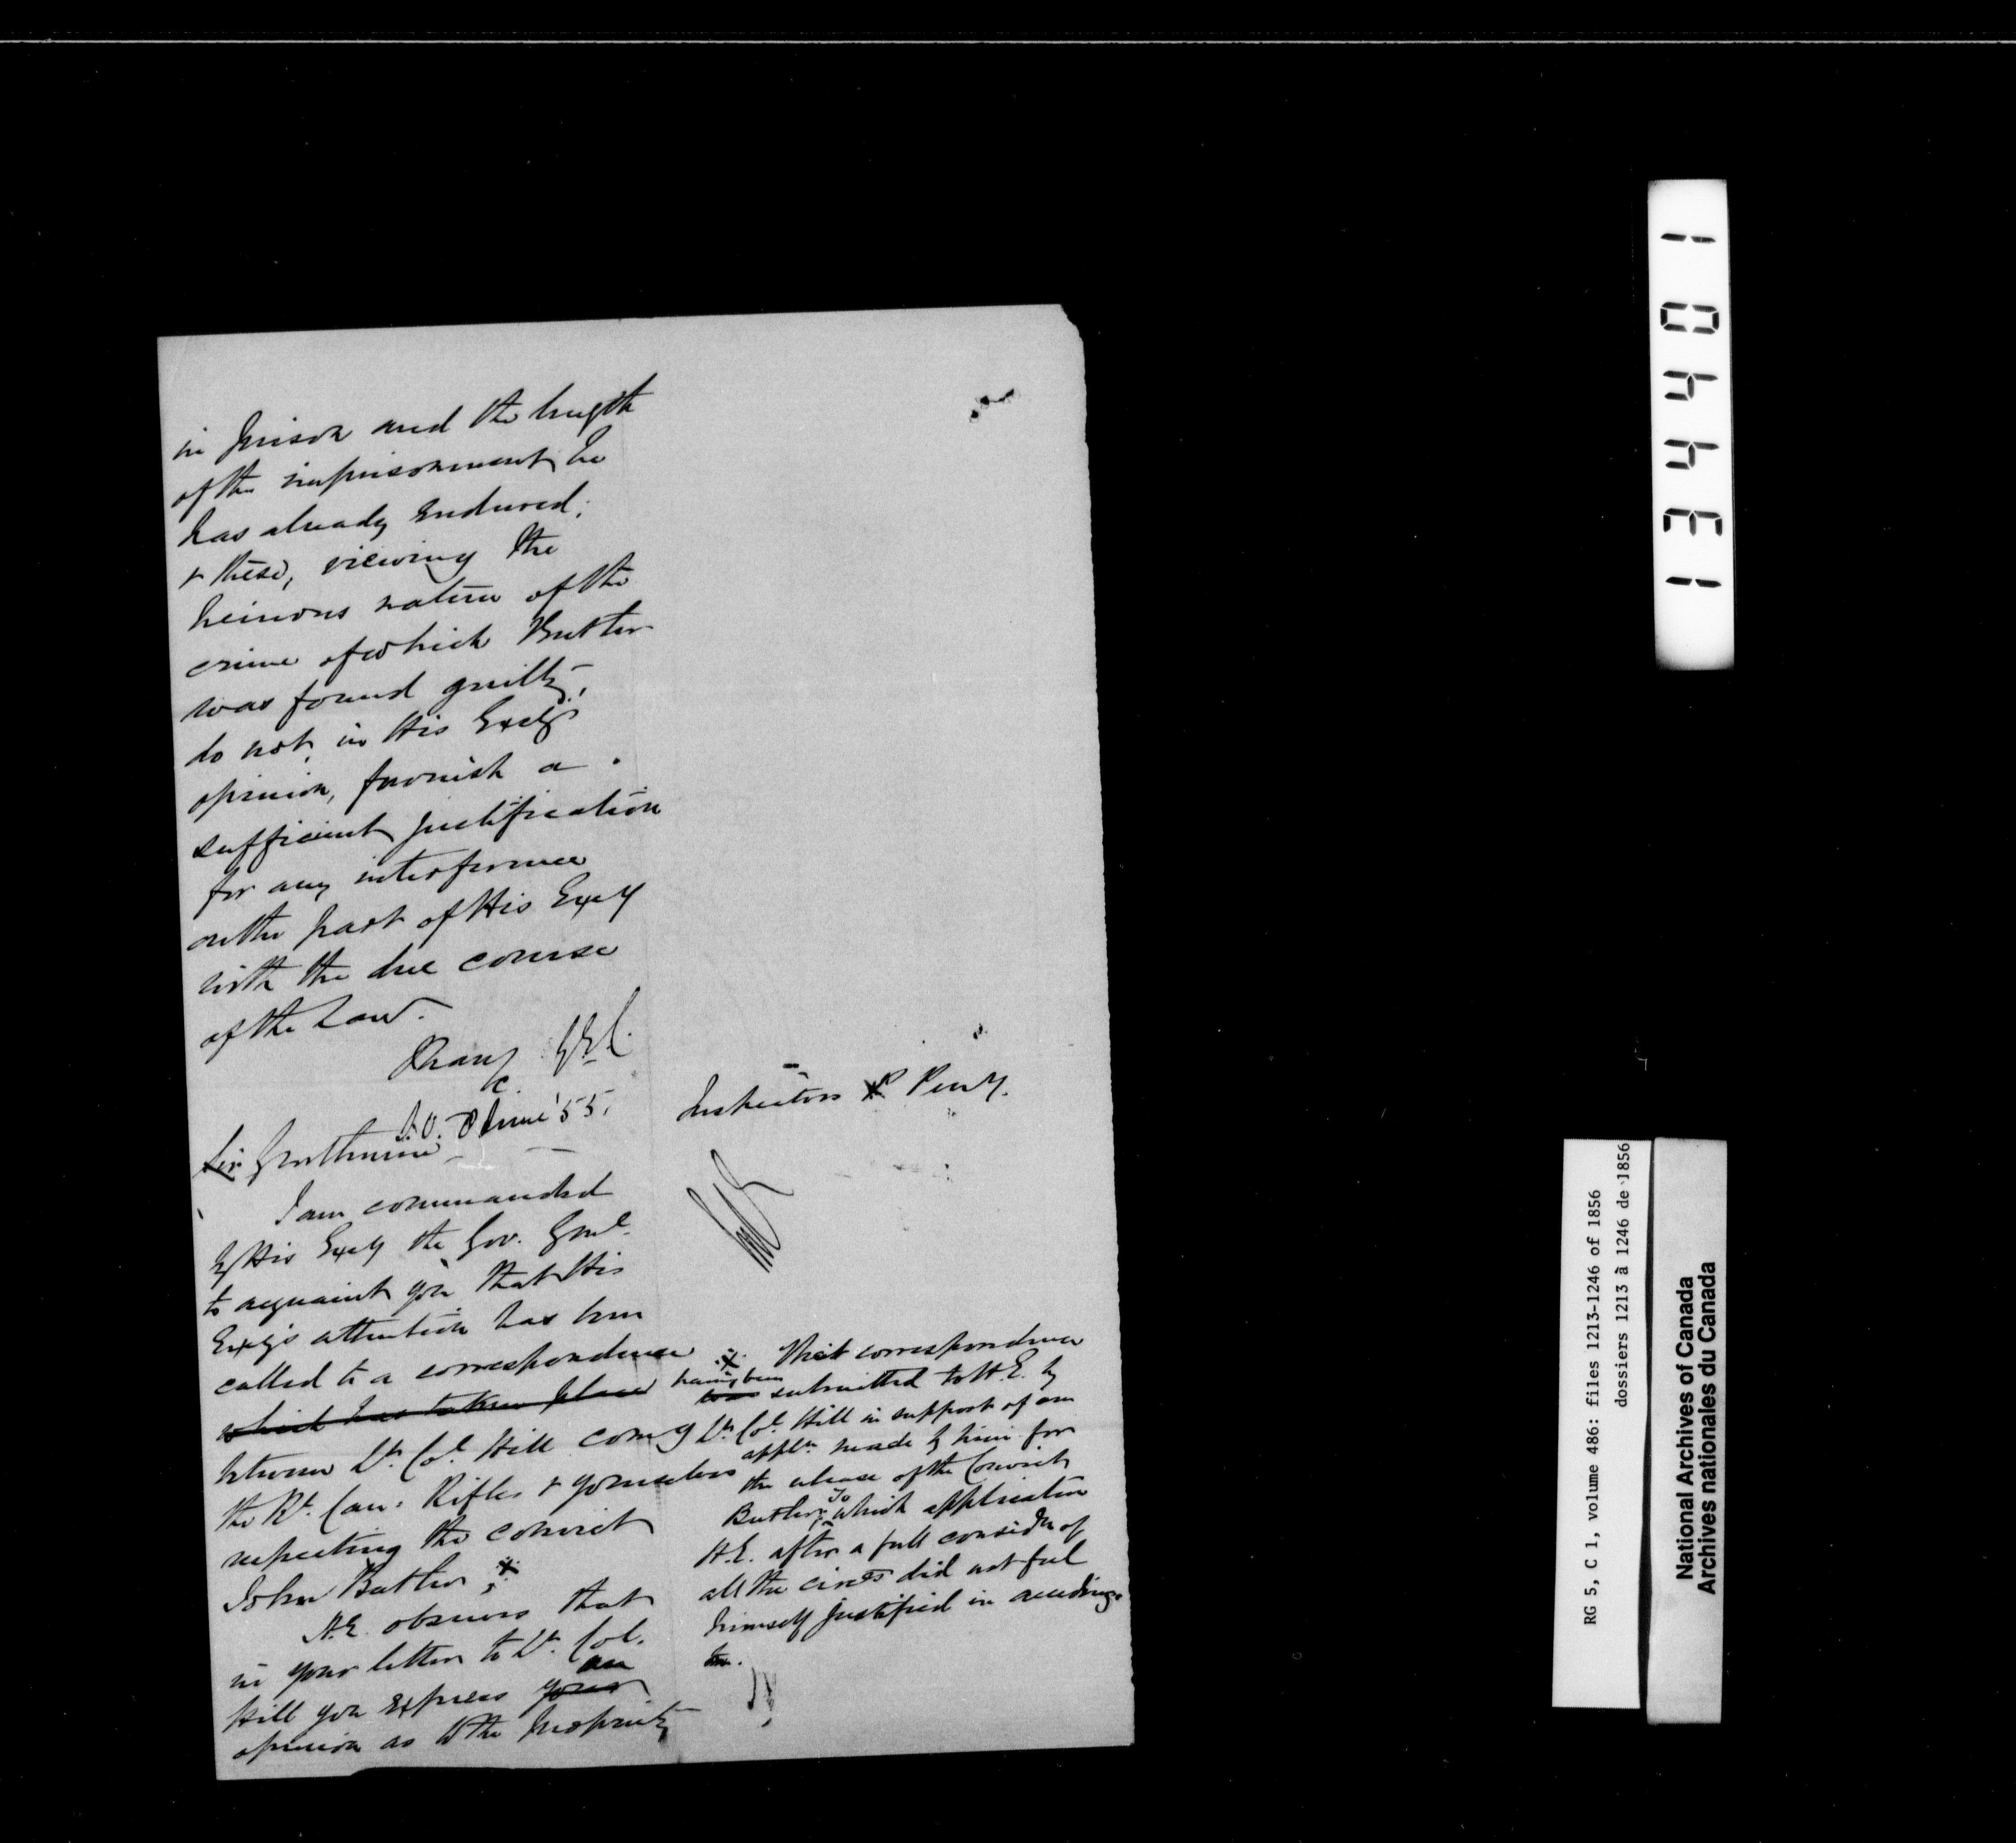 in prison and the length
of the imprisonment he
has already endured;
& these, viewing the
heinous nature of the
crime of which Butler
was found guilty,
do not, in His Excy's
opinion, furnish a
sufficient justification
for any interference
on the part of His Excy
with the due course
of the Law.
S.O. 8 June '55.
Sir Gentlemen
I am commanded
by His Excy the Gov. Genl
to acquaint you that His
Excy's attention has been
called to a correspondence
which has taken place
between Lt. Col. Hill comg
the Rl. Can: Rifles & yourselves
respecting the convict
John Butler, x
H.E. observes that
in your letter to Lt. Col.
Hill you express your an
opinion as to the propriety
Inspectors P. Peny.
x That correspondence
having been was submitted to H.E. by
Lt. Col. Hill in support of an
appln. made by him for
the release of the Convict
Butler, To which application
H.E. after a full considn of
all the circes did not feel
himself justified in acceding.
RG 5, C 1, volume 486: files 1213-1246 of 1856
dossiers 1213 à 1246 de 1856
National Archives of Canada
Archives nationales du Canada
134401